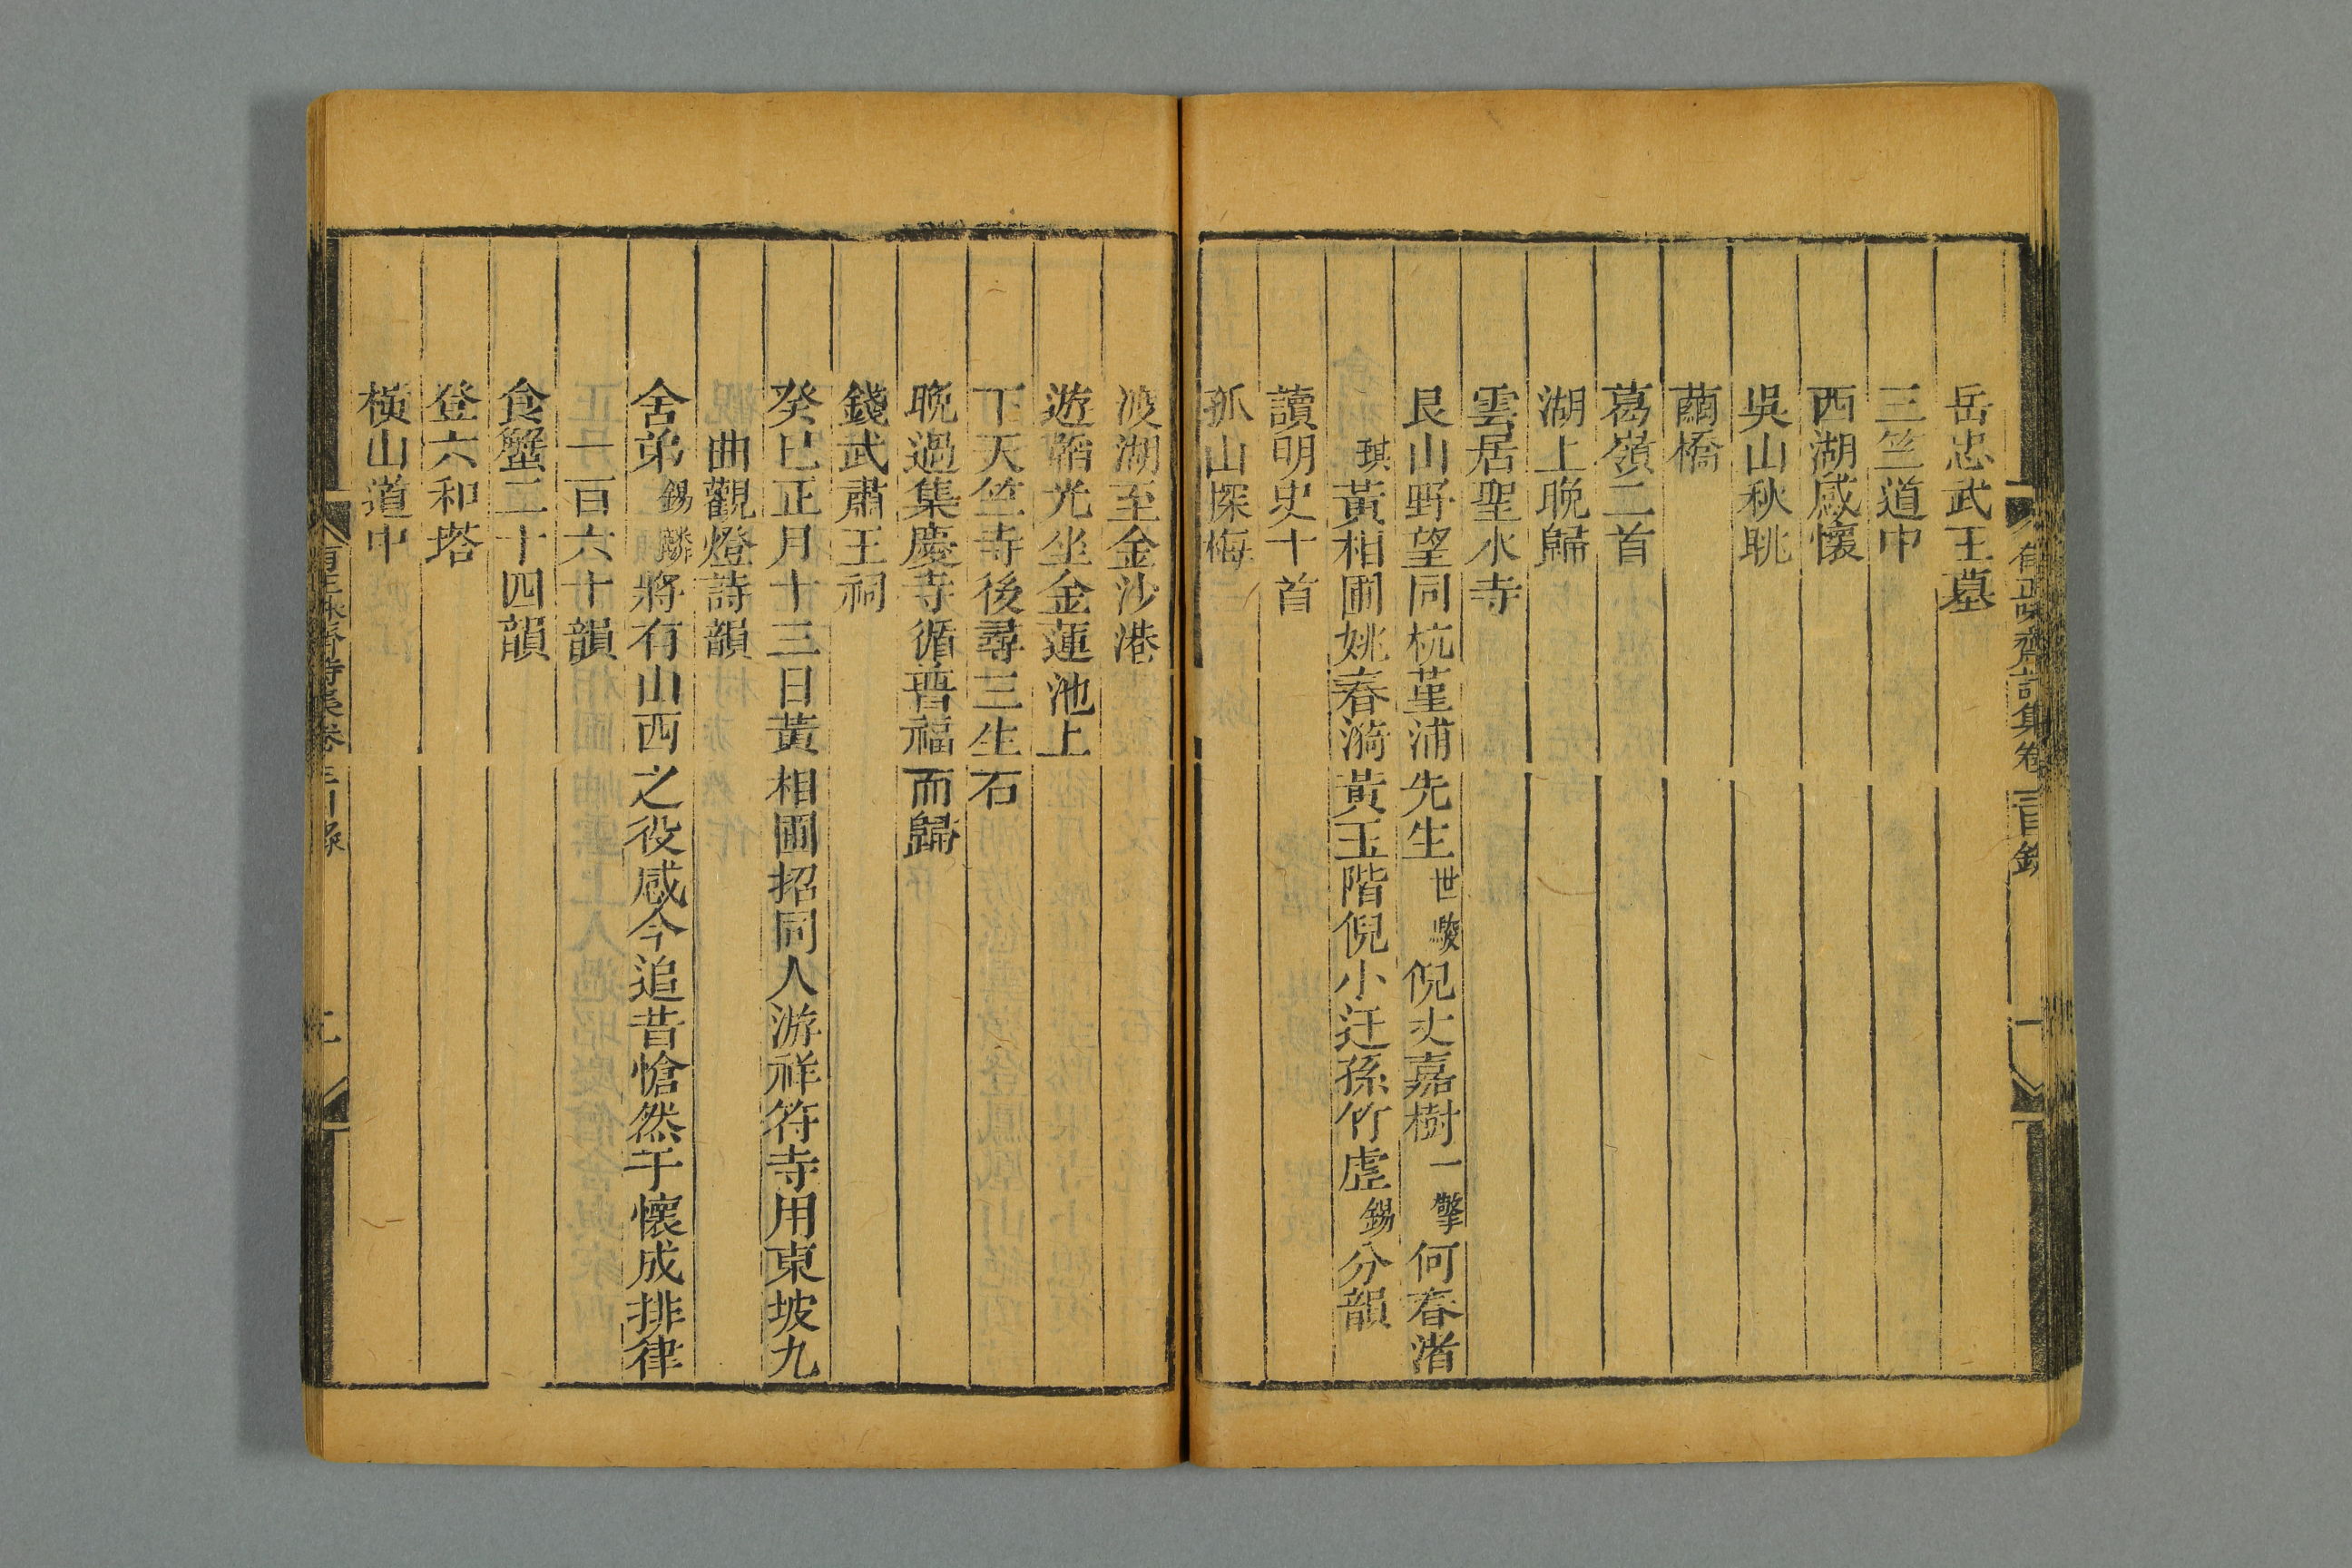 有正味齋詩集卷二目錄
一
岳忠武王墓
三竺道中
西湖感懷
吳山秋眺
繭橋
葛嶺二首
湖上晚歸
雲居聖水寺
艮山野望同杭堇浦先生世駿倪丈嘉樹一擎何春渚
琪黃相圃姚春漪黃玉階倪小迂孫竹虛錫分韻
讀明史十首
孤山探梅
渡湖至金沙港
遊韜光坐金蓮池上
下天竺寺後尋三生石
晚過集慶寺循普福而歸
錢武肅王祠
癸巳正月十三日黃相圃招同人游祥符寺用東坡九
曲觀燈詩韻
舍弟錫麟將有山西之役感今追昔愴然于懷成排律
一百六十韻
食蟹二十四韻
登六和塔
橫山道中
有正味齋詩集卷二目錄